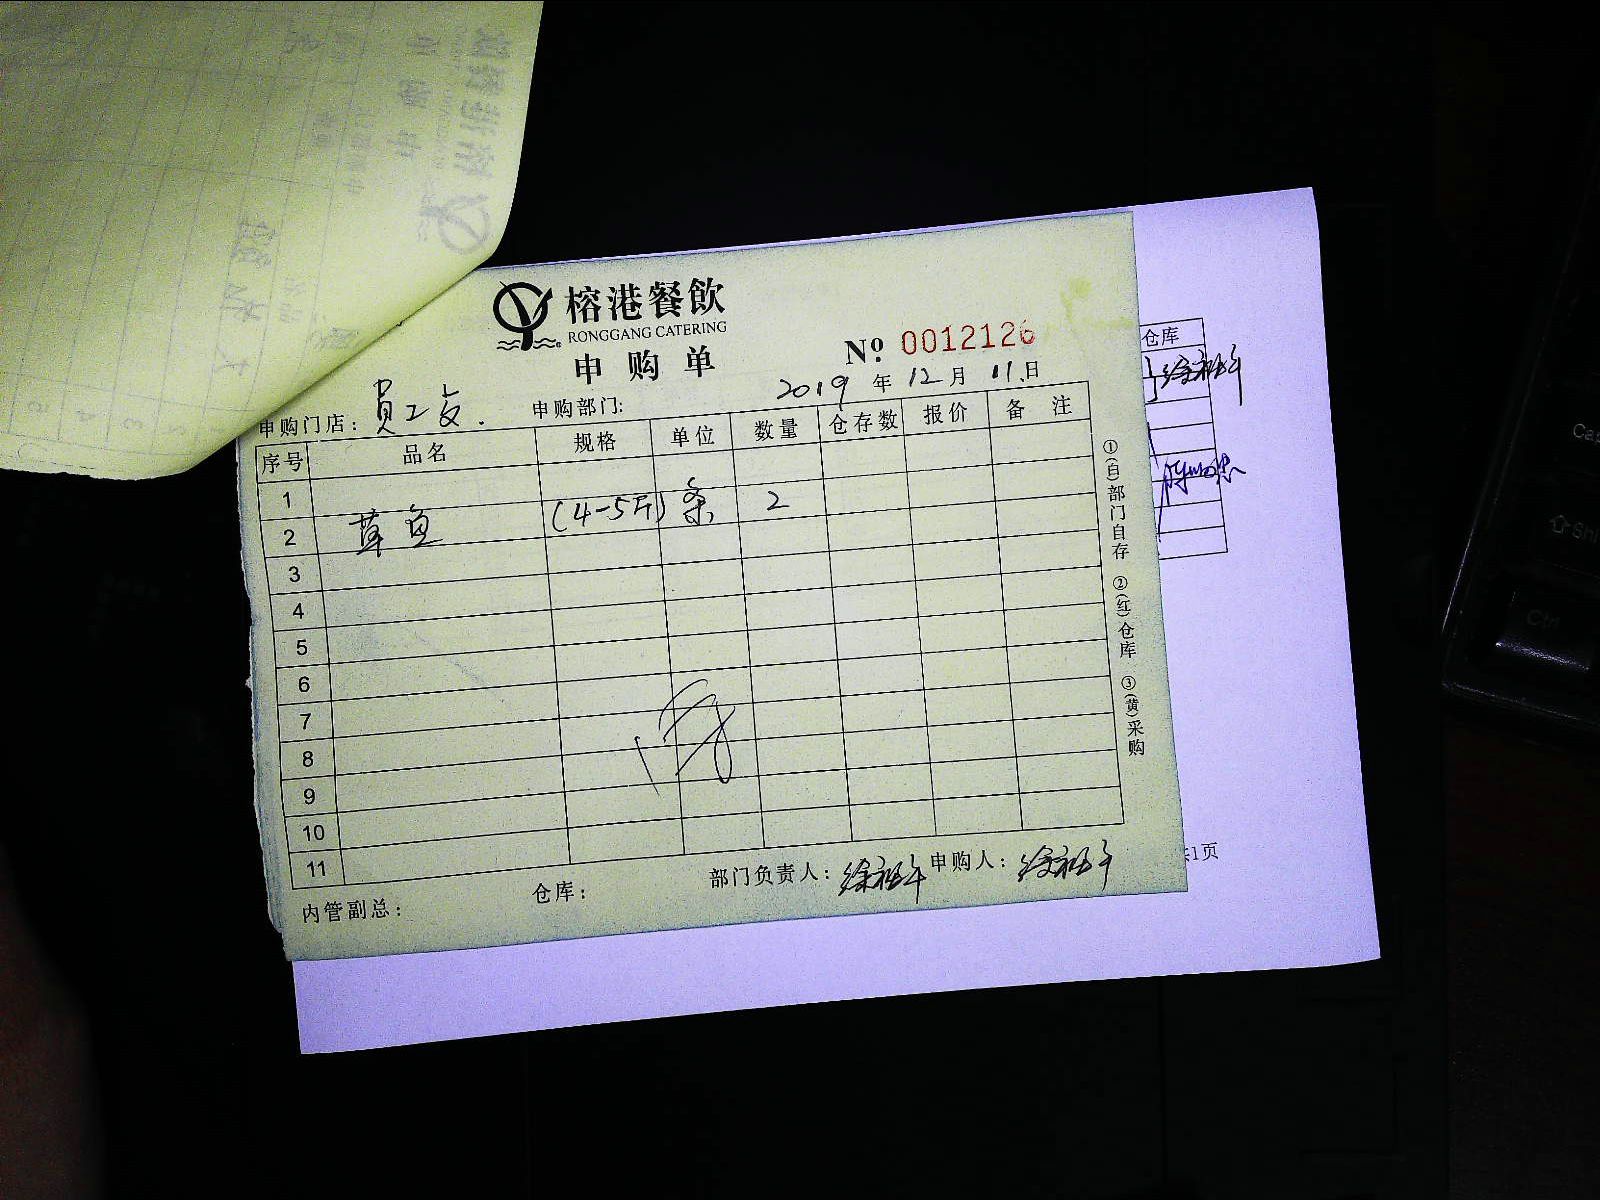 榕港餐飲
RONGGANG CATERING
申购单
№ 0012126
2019 年 12 月 11 日
申购门店： 员工 申购部门:
序号 品名 规格 单位 数量 仓存数 报价 备注
1
2 草鱼 (4-5斤) 条 2
3
4
5
6
7
8
9
10
11
内管副总： 仓库： 部门负责人： 申购人：
①(白)部门自存 ②(红)仓库 ③(黄)采购
仓库
1页
Ctrl